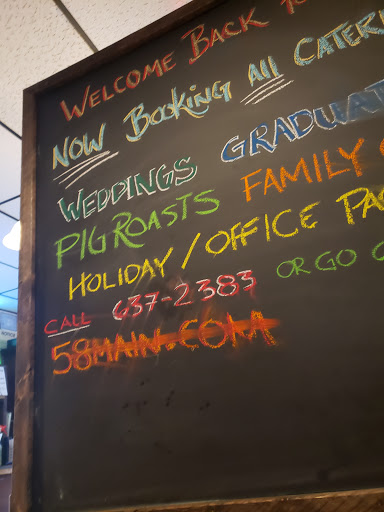 WELCOME BACK TO
NOW BOOKING All CATER
WEDDINGS GRADUAT
PIG ROASTS FAMILY
HOLIDAY / OFFICE PA
CALL 637-2383 OR GO
58MAIN.COM